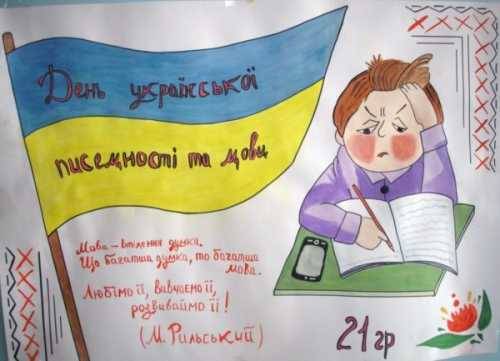 День української
писемності та мови
Мова – втілення думки.
Що багатша думка, то багатша
мова.
Любімо її, вивчаємо її,
розвиваймо її!
(М. Рильський)
21 гр